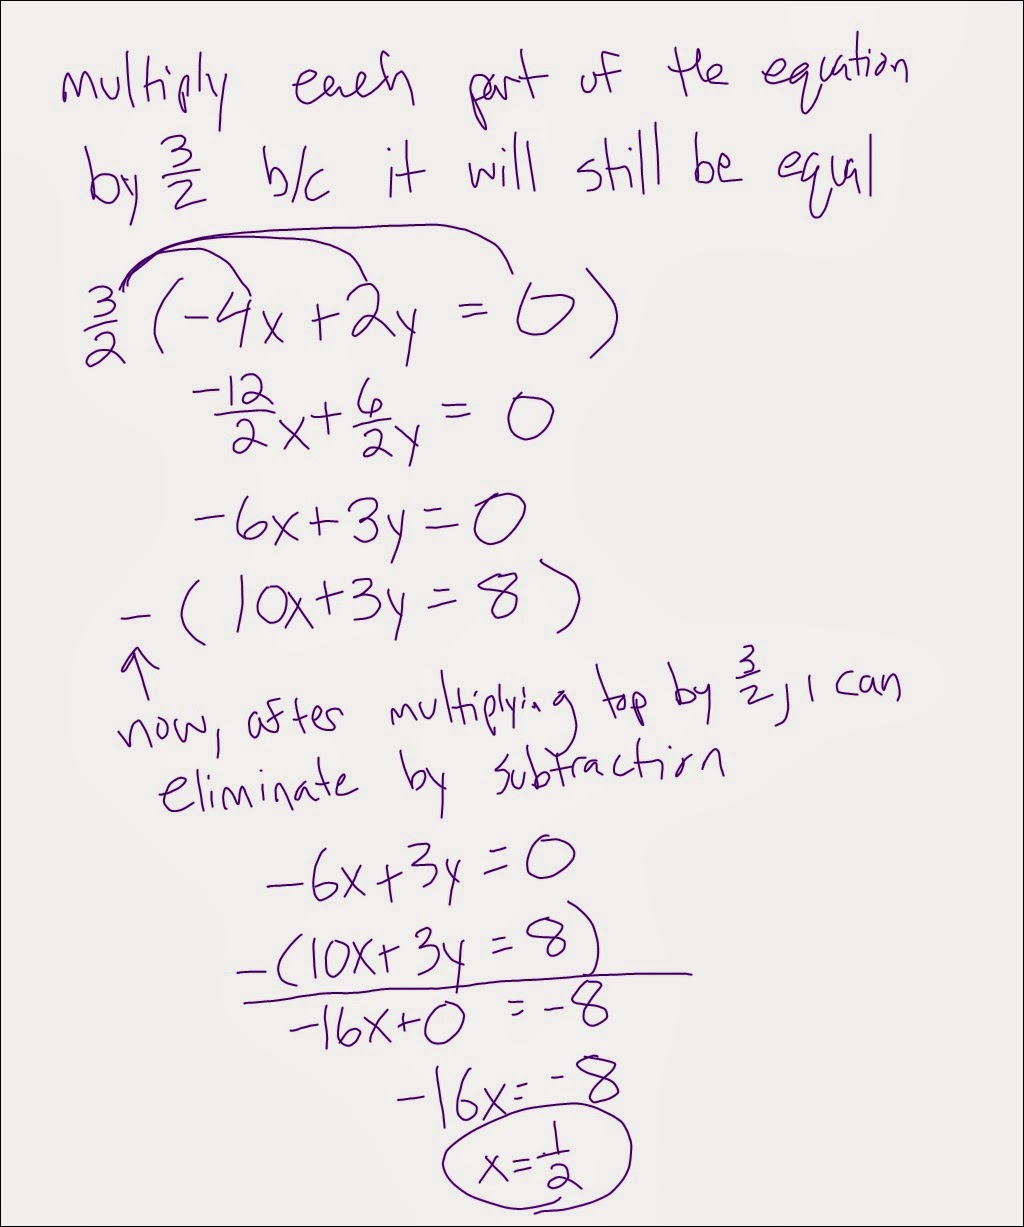 multiply each part of the equation
by 3/2 b/c it will still be equal
3/2 (-4x + 2y = 0)
-12/2 x + 6/2 y = 0
-6x + 3y = 0
- (10x + 3y = 8)
↑
now, after multiplying top by 3/2, I can
eliminate by subtraction
-6x + 3y = 0
-(10x + 3y = 8)
-16x + 0 = -8
-16x = -8
x = 1/2